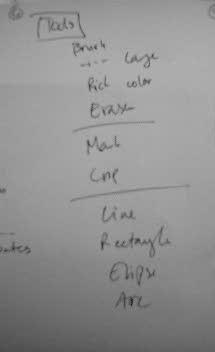 Tools
Brush
--- Large
Pick color
Eraser
Mark
Crop
Line
Rectangle
Elipse
Arc